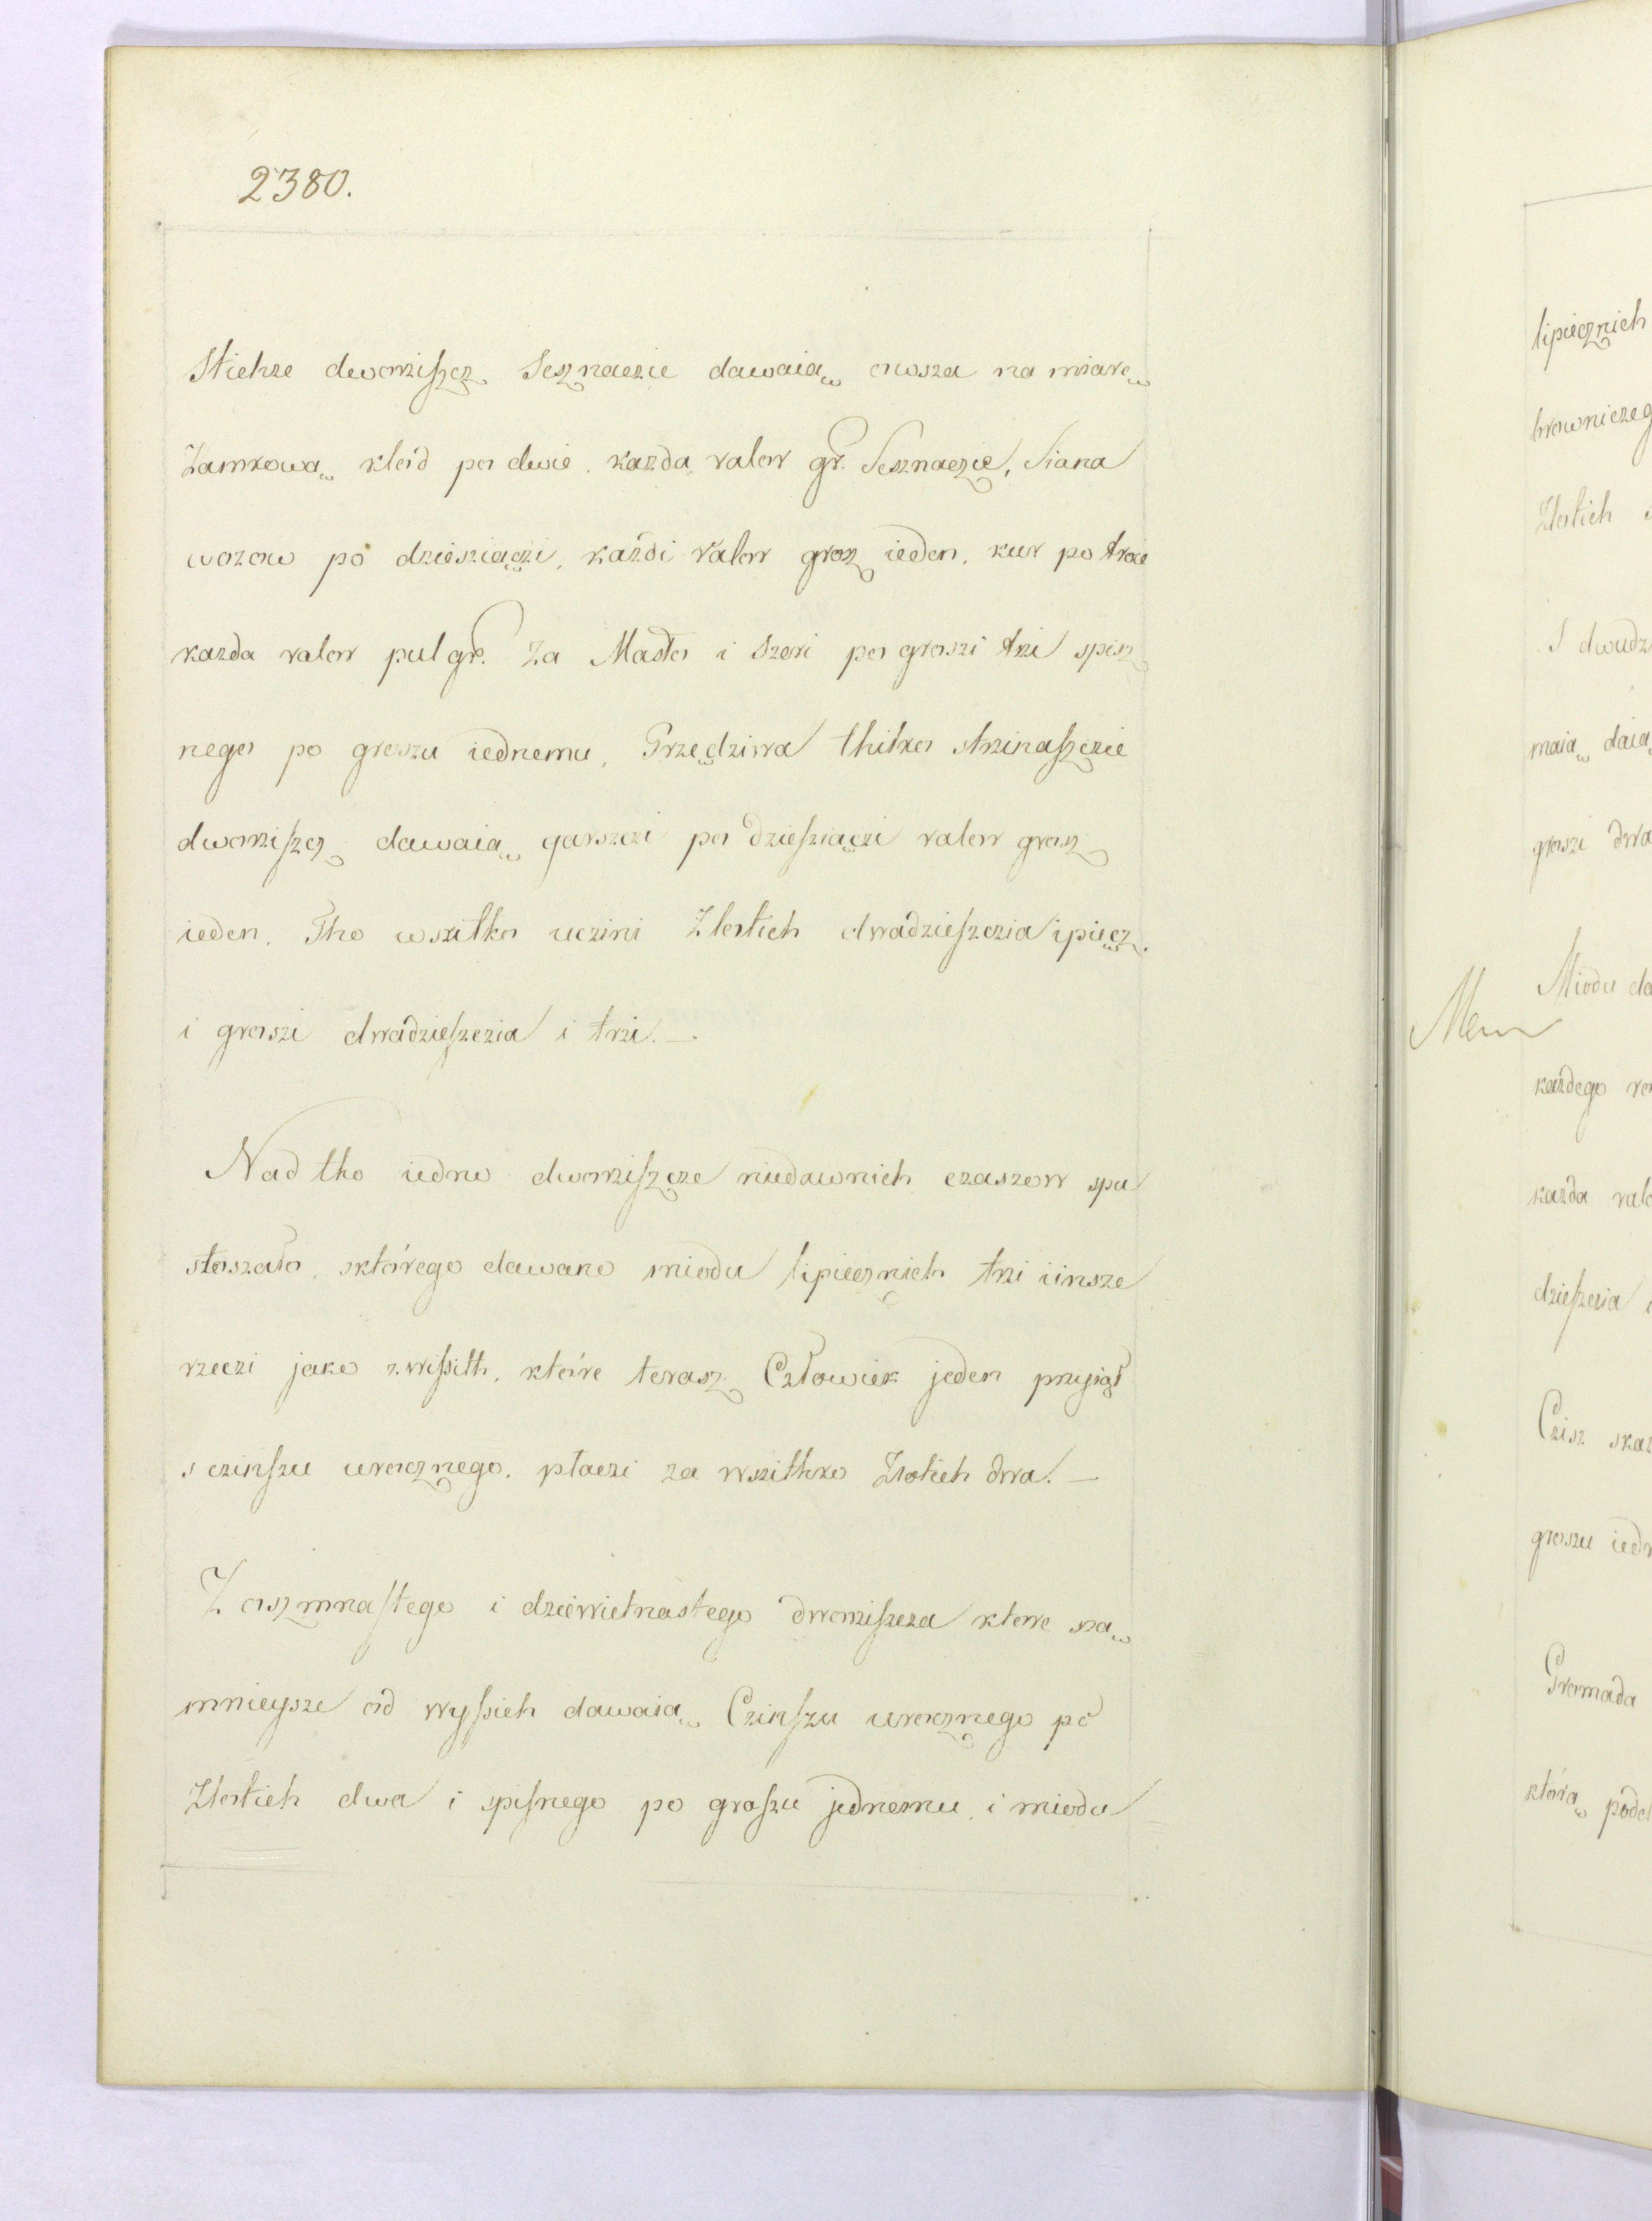 2380.
Stichze dworziszcz Sesznaczie dawaią owsza na miarę
Zamkową kłód po dwie, każda valor gr. Sesznaczie, Siana
wozow po dziesziączi, każdi valor grosz ieden, kur po troie
kazda valor pul gr. Za Masło i Szeri po groszi trzi spisz
nego po groszu iednemu, Przędziwa thilko strzinaszczie
dworziszcz dawaią garszczi po dziesziączi valor grosz
ieden. Tho wszitko uczini Złotich dwadzieszczia i pięcz
i groszi dwadzieszczia i trzi. —
Nad tho iedno dworziszcze niedawnich czaszow spu
stoszało, sktórego dawano miodu lipiecznich trzi iinsze
rzeczi jako zwissith, które terasz Człowiek jeden przyjął
s czinszu urocznego, płaczi za wszithko Złotich dwa. —
Z oszmnastego i dziewietnastego dworziszcza które szą
mnieysze od wyssich dawaią Czinszu urocznego po
Złotich dwa i spisnego po groszu jednemu, i miodu
lipiecznich
Złotich
I dwudz
maią daią
groszi dwa
Miodu da
każdego
każda valo
dzieszczia
Czisz skaż
groszu iedn
Gromada
którą